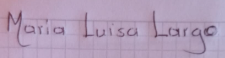 Maria Luisa Largo